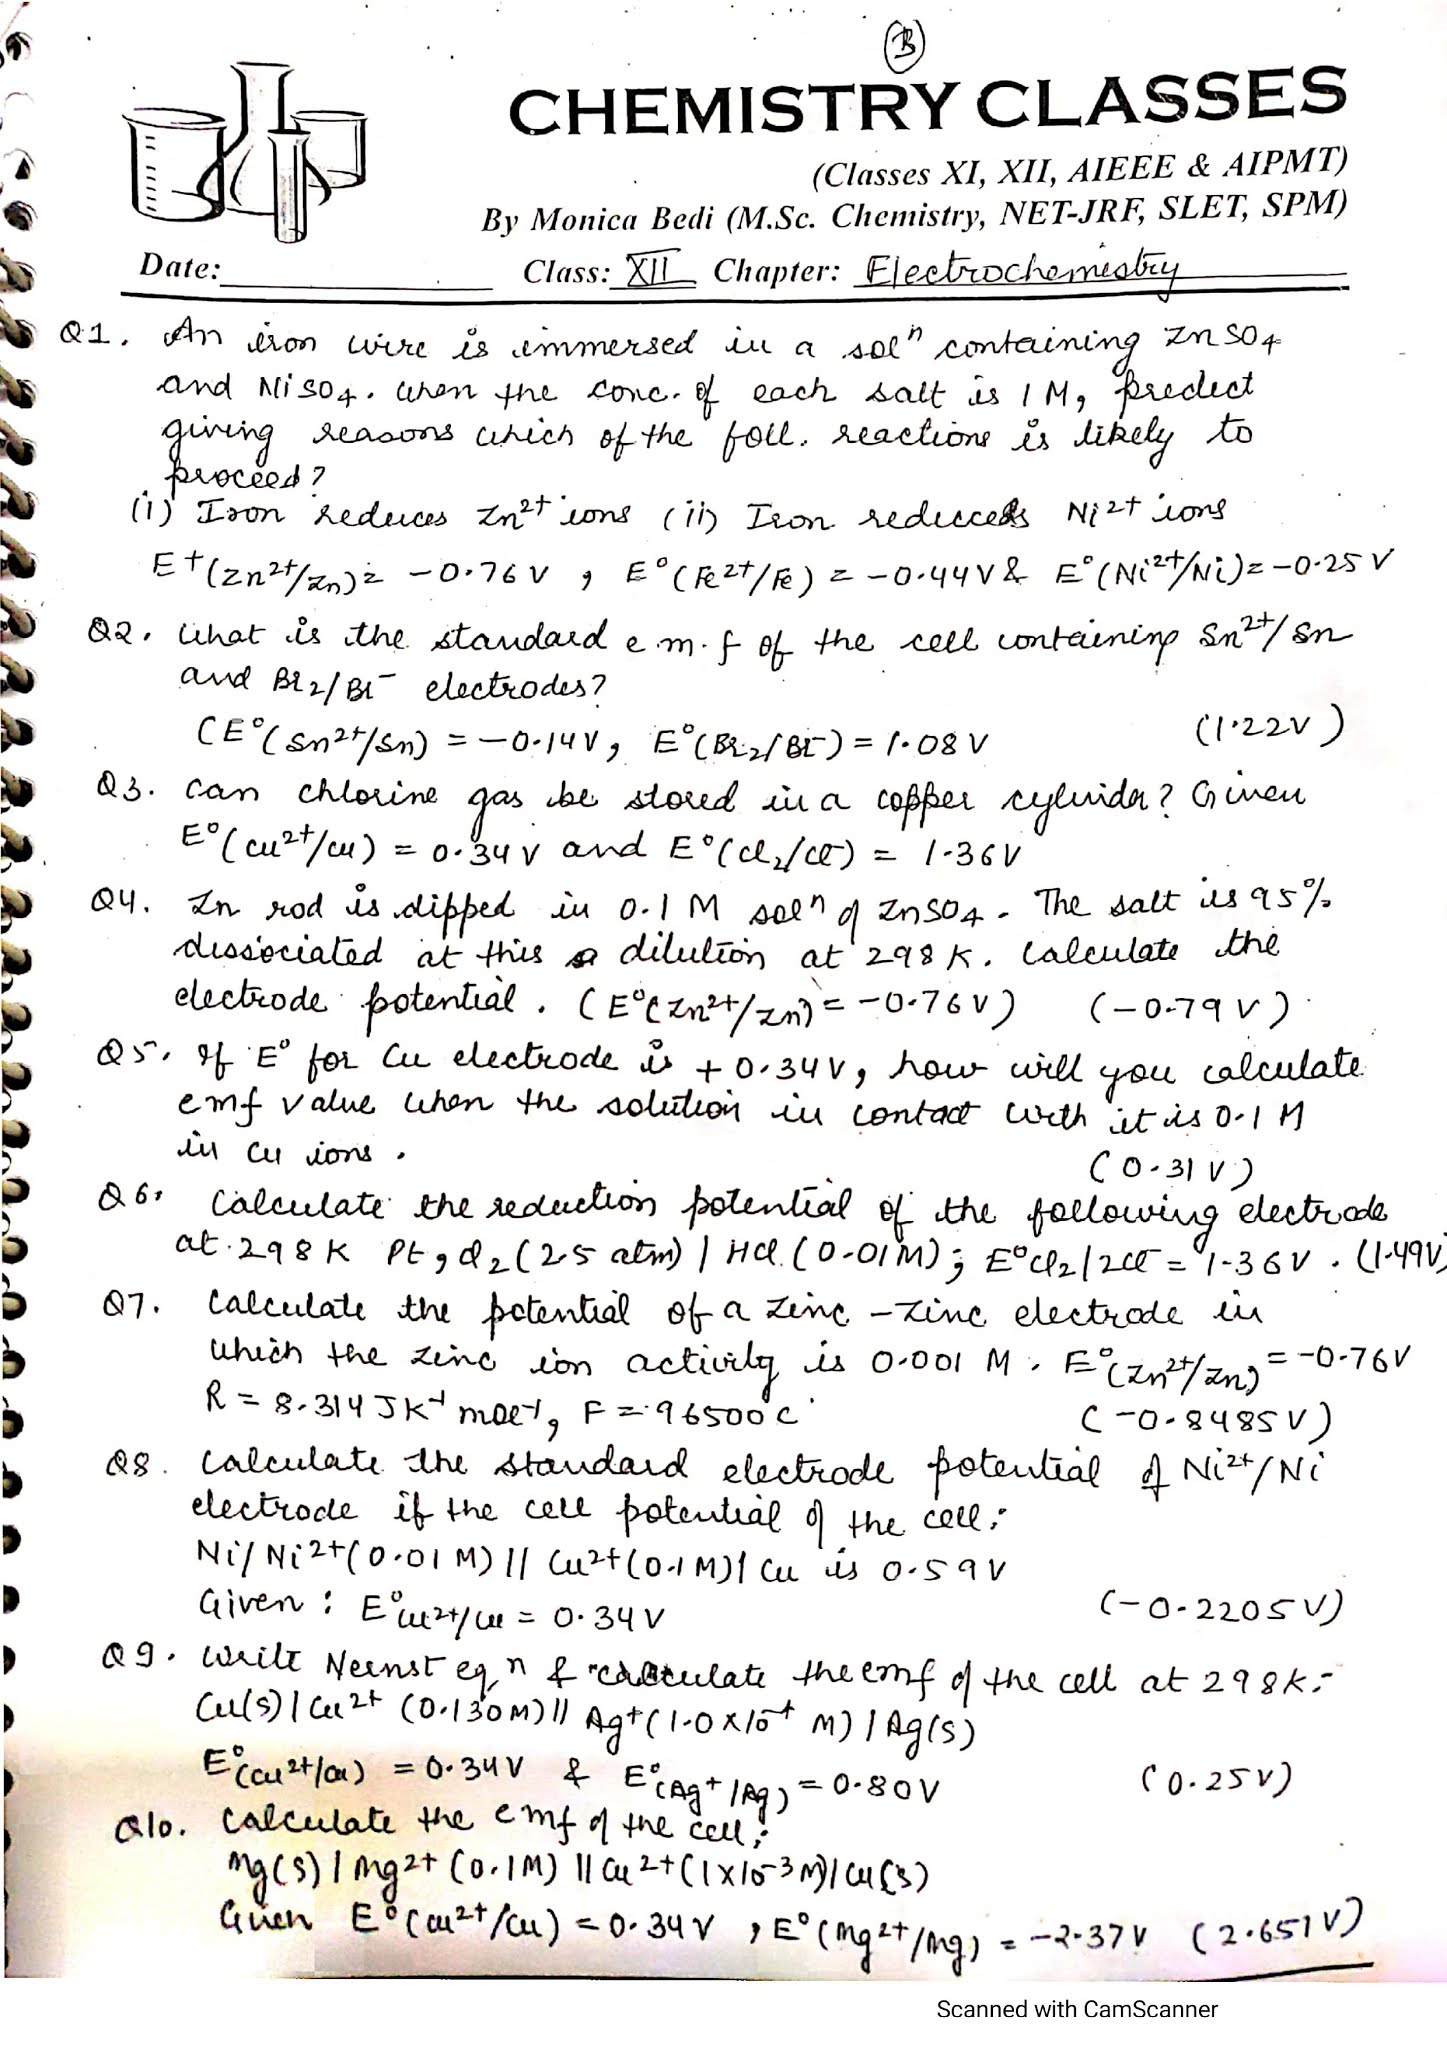 B
CHEMISTRY CLASSES
(Classes XI, XII, AIEEE & AIPMT)
By Monica Bedi (M.Sc. Chemistry, NET-JRF, SLET, SPM)
Date: Class: XII Chapter: Electrochemistry
Q1. An iron wire is immersed in a solⁿ containing ZnSO4
and NiSO4. When the conc. of each salt is 1 M, predect
giving reasons which of the foll. reactions is likely to
proceed?
(i) Iron reduces Zn²⁺ ions (ii) Iron reduces Ni²⁺ ions
E⁺(Zn²⁺/Zn) = -0.76 V , E°(Fe²⁺/Fe) = -0.44V & E°(Ni²⁺/Ni) = -0.25 V
Q2. What is the standard e.m.f of the cell containing Sn²⁺/Sn
and Br2/Br⁻ electrodes?
(E°(Sn²⁺/Sn) = -0.14V, E°(Br2/Br⁻) = 1.08 V (1.22V)
Q3. Can chlorine gas be stored in a copper cylinder? Given
E°(Cu²⁺/Cu) = 0.34 V and E°(Cl2/Cl⁻) = 1.36V
Q4. Zn rod is dipped in 0.1 M solⁿ of ZnSO4. The salt is 95%
dissociated at this dilution at 298 K. Calculate the
electrode potential. (E°(Zn²⁺/Zn) = -0.76V) (-0.79 V)
Q5. If E° for Cu electrode is +0.34V, how will you calculate
emf value when the solution in contact with it is 0.1 M
in Cu ions. (0.31 V)
Q6. Calculate the reduction potential of the following electrode
at 298K Pt, Cl2 (25 atm) | HCl (0.01M); E°Cl2/2Cl⁻ = 1.36V. (1.49V)
Q7. Calculate the potential of a zinc -zinc electrode in
which the zinc ion activity is 0.001 M. E°(Zn²⁺/Zn) = -0.76V
R = 8.314 JK⁻¹ mol⁻¹, F = 96500 C (-0.8485V)
Q8. Calculate the standard electrode potential of Ni²⁺/Ni
electrode if the cell potential of the cell;
Ni/Ni²⁺(0.01 M) || Cu²⁺(0.1M) | Cu is 0.59V
Given : E°Cu²⁺/Cu = 0.34V (-0.2205V)
Q9. Write Nernst eqⁿ & calculate the emf of the cell at 298K:-
Cu(s) | Cu²⁺ (0.130M) || Ag⁺(1.0 X 10⁻⁴ M) | Ag(s)
E°(Cu²⁺/Cu) = 0.34V & E°(Ag⁺/Ag) = 0.80V (0.25V)
Q10. Calculate the emf of the cell;
Mg(s) | Mg²⁺ (0.1M) || Cu²⁺(1X10⁻³M) | Cu(s)
Given E°(Cu²⁺/Cu) = 0.34V , E°(Mg²⁺/Mg) = -2.37V (2.651V)
Scanned with CamScanner